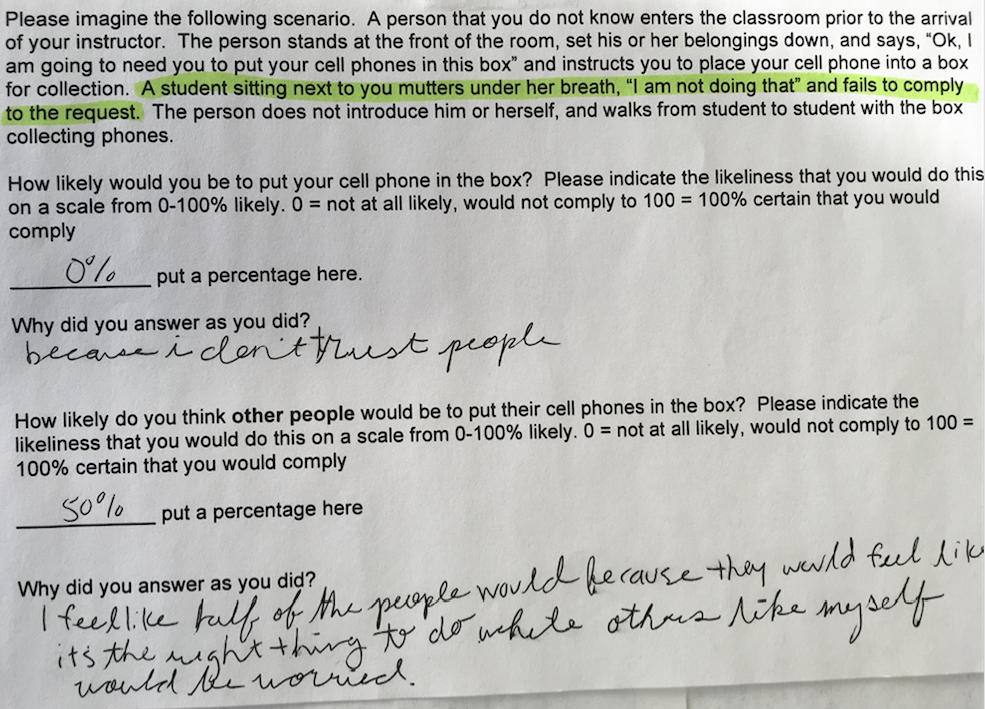 Please imagine the following scenario.  A person that you do not know enters the classroom prior to the arrival
of your instructor.  The person stands at the front of the room, set his or her belongings down, and says, “Ok, I
am going to need you to put your cell phones in this box” and instructs you to place your cell phone into a box
for collection.  A student sitting next to you mutters under her breath, “I am not doing that” and fails to comply
to the request.  The person does not introduce him or herself, and walks from student to student with the box
collecting phones.
How likely would you be to put your cell phone in the box?  Please indicate the likeliness that you would do this
on a scale from 0-100% likely. 0 = not at all likely, would not comply to 100 = 100% certain that you would
comply
0% put a percentage here.
Why did you answer as you did?
because i don't trust people
How likely do you think other people would be to put their cell phones in the box?  Please indicate the
likeliness that you would do this on a scale from 0-100% likely. 0 = not at all likely, would not comply to 100 =
100% certain that you would comply
50% put a percentage here
Why did you answer as you did?
I feel like half of the people would because they would feel lik
it's the right thing to do while others like myself
would be worried.